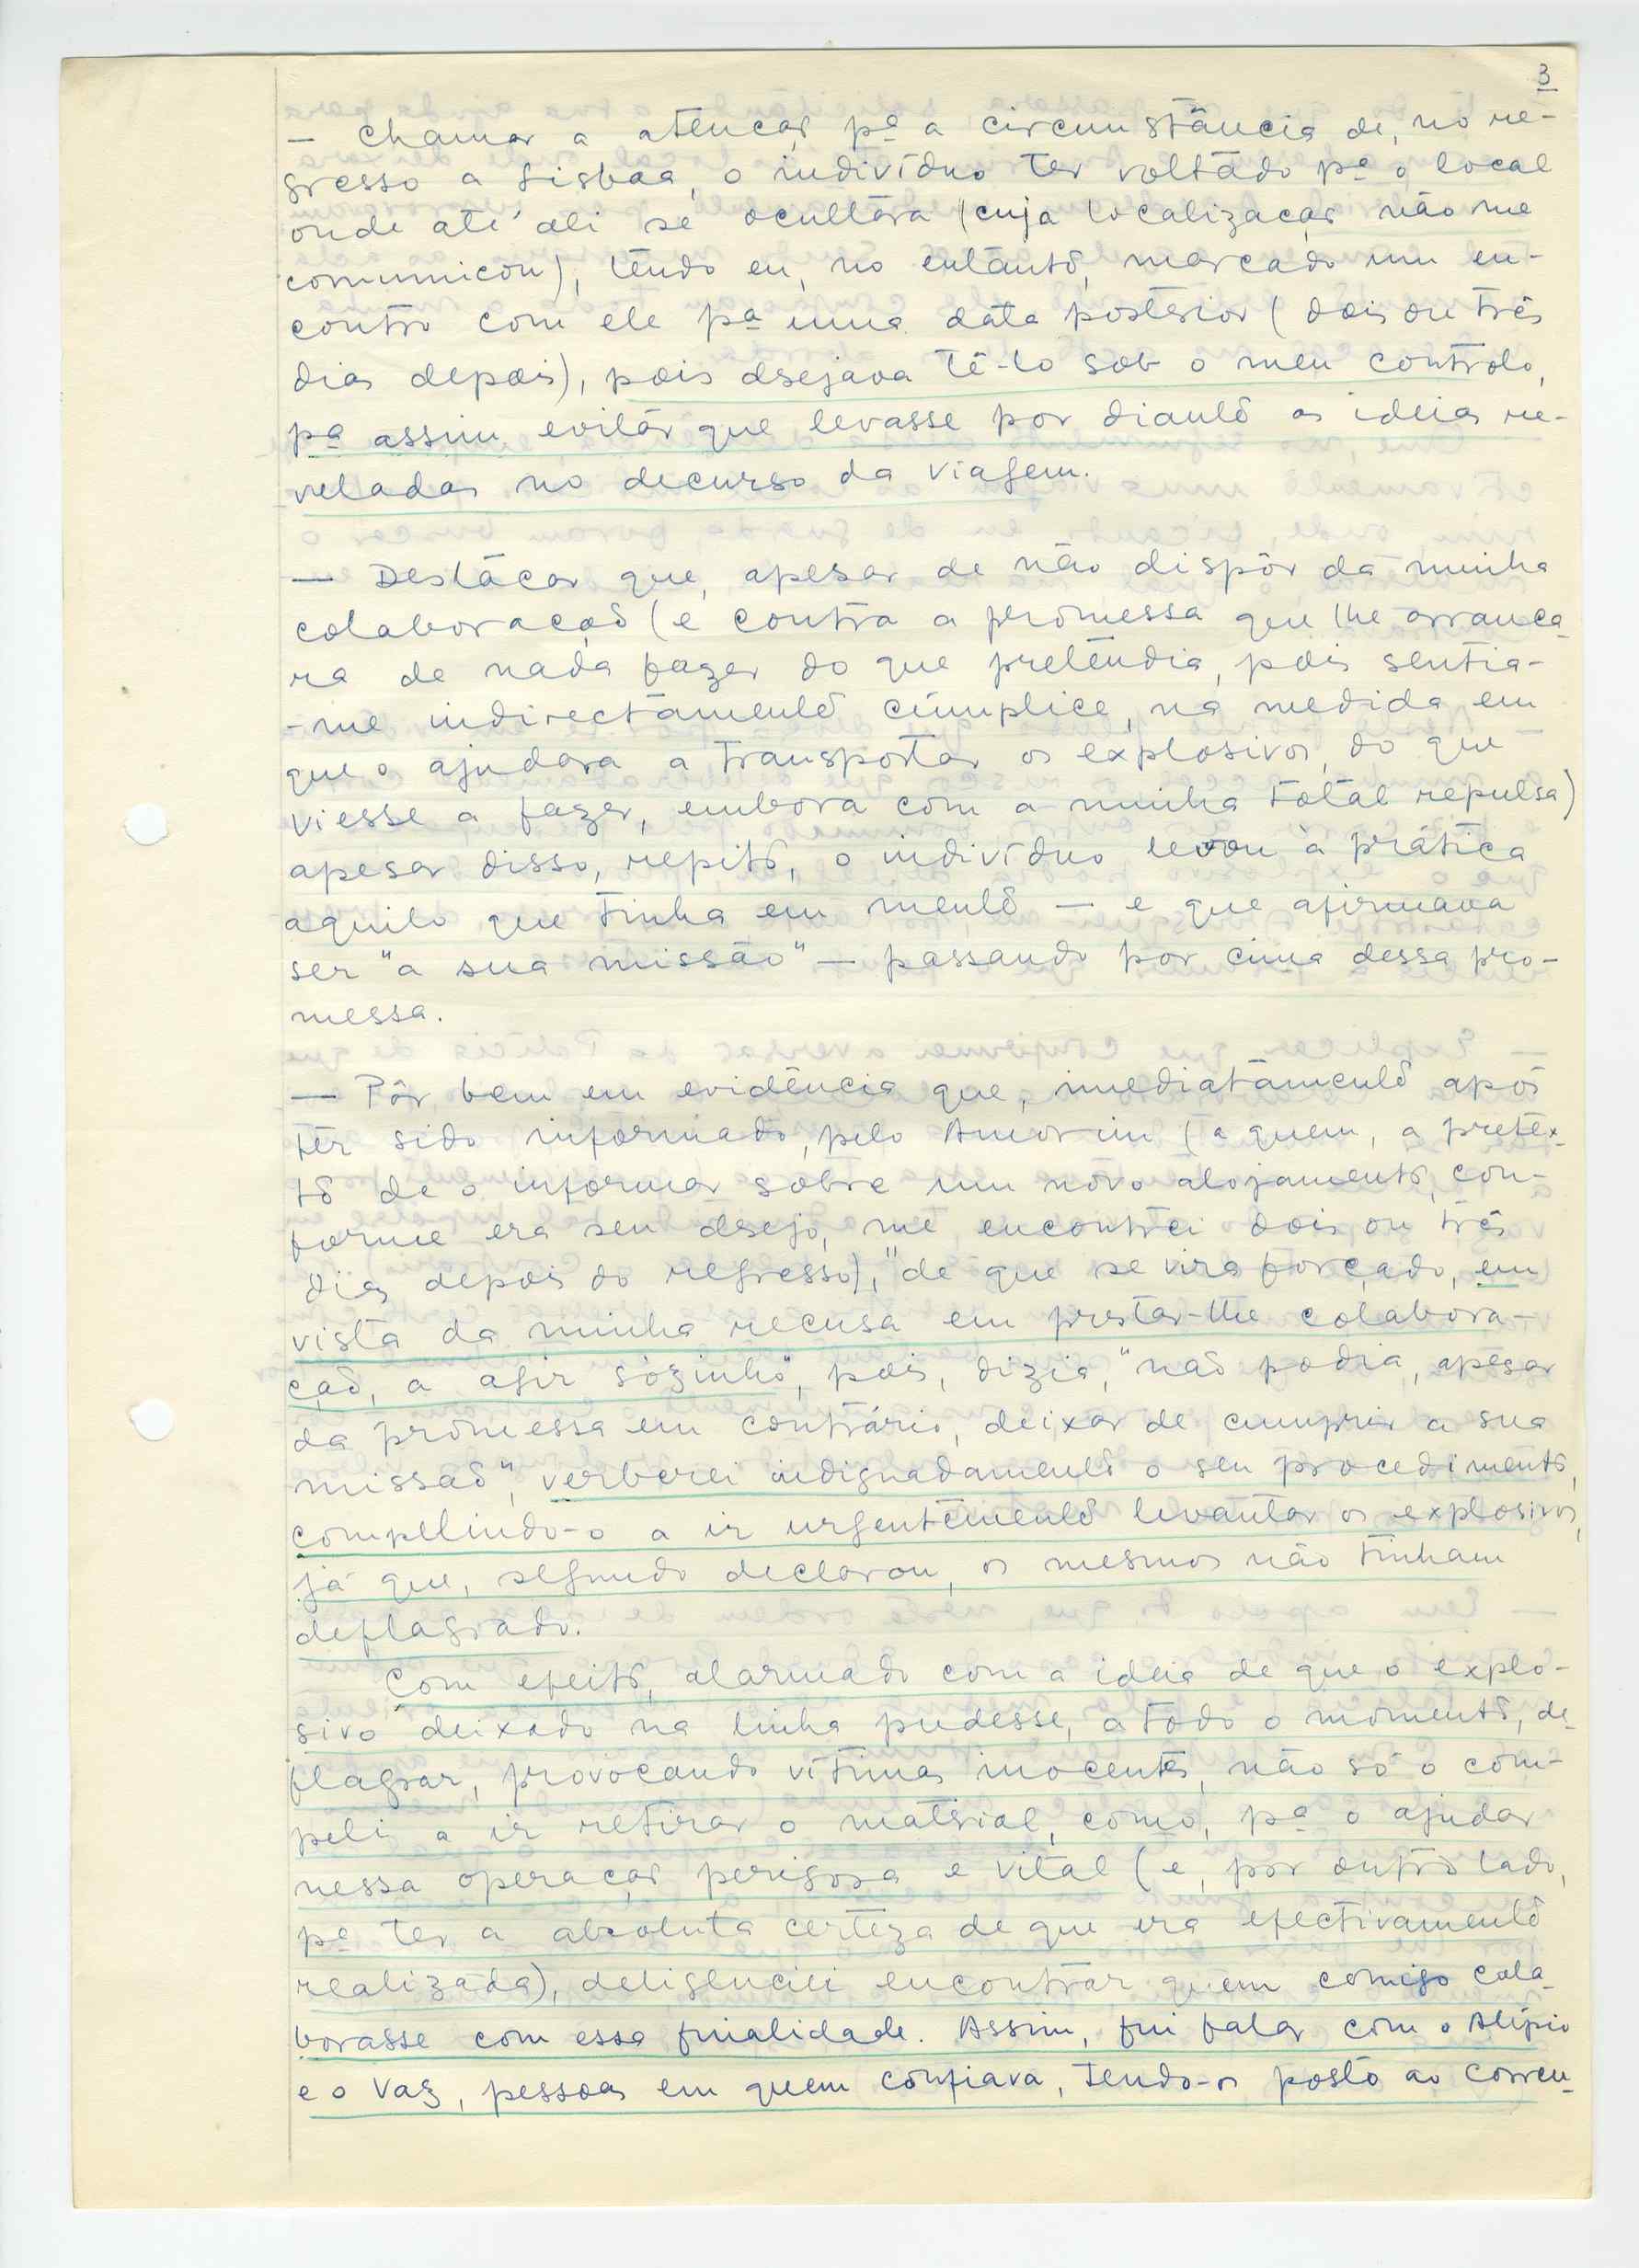 3
— Chamar a atenção pª a circunstância de, no re-
gresso a Lisboa, o indivíduo ter voltado pª o local
onde até ali se ocultara (cuja localização não me
comunicou), tendo eu, no entanto, marcado um en-
contro com ele pª uma data posterior (dois ou três
dias depois), pois desejava tê-lo sob o meu controlo,
pª assim evitar que levasse por diante as ideias re-
veladas no decurso da viagem.
— Destacar que, apesar de não dispôr da minha
colaboração (e contra a promessa que lhe arranca-
ra de nada fazer do que pretendia, pois sentia-
-me indirectamente cúmplice, na medida em
que o ajudara a transportar os explosivos, do que
viesse a fazer, embora com a minha total repulsa)
apesar disso, repito, o indivíduo levou à prática
aquilo que tinha em mente — e que afirmava
ser "a sua missão" — passando por cima dessa pro-
messa.
— Pôr bem em evidência que, imediatamente após
ter sido informado, pelo Amorim (a quem, a pretex-
to de o informar sobre um novo alojamento, con-
forme era seu desejo, me encontrei dois ou três
dias depois do regresso), "de que se vira forçado, em
vista da minha recusa em prestar-lhe colabora-
ção, a agir sòzinho", pois, dizia, "não podia, apesar
da promessa em contrário, deixar de cumprir a sua
missão", verberei indignadamente o seu procedimento,
compelindo-o a ir urgentemente levantar os explosivos,
já que, segundo declarou, os mesmos não tinham
deflagrado.
Com efeito, alarmado com a ideia de que o explo-
sivo deixado na linha pudesse, a todo o momento, de-
flagrar, provocando vítimas inocentes, não só o com-
peli a ir retirar o material, como, pª o ajudar
nessa operação perigosa e vital (e, por outro lado,
pª ter a absoluta certeza de que era efectivamente
realizada), deligenciei encontrar quem comigo cola-
borasse com essa finalidade. Assim, fui falar com o Alípio
e o Vaz, pessoas em quem confiava, tendo-os posto ao corren-